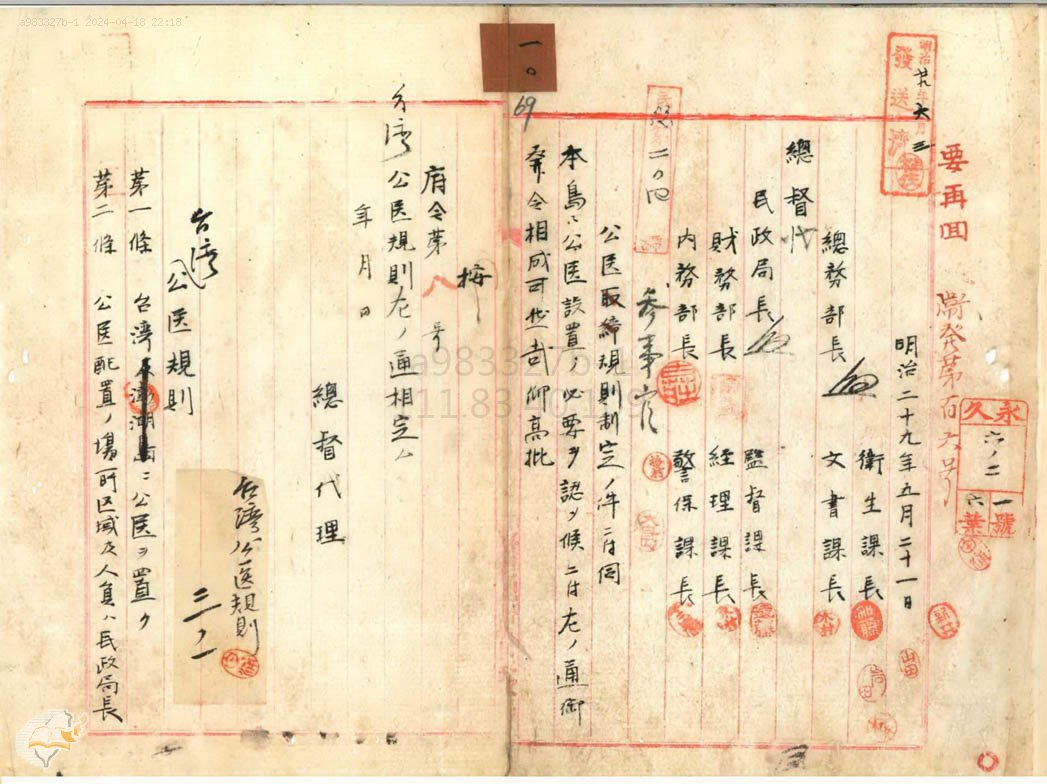 a983327b-1 2024-04-18 22:18
明治廿九年六月三
發送濟
要再回
永久
一號
六葉
明治二十九年五月二十一日
衛生課長
總務部長
文書課長
總督代
民政局長
監督課長
財務部長
経理課長
内務部長
警保課長
二〇四
参事官
公医取締規則制定ノ件ニ付伺
本島ニ公医設置ノ必要ヲ認メ候ニ付左ノ通御
発令相成可然哉仰高批
一〇
69
按
府令第八号
台湾公医規則左ノ通相定ム
年月日
總督代理
台湾公医規則
台湾公医規則
三ノ一
第一條 台湾澎湖島ニ公医ヲ置ク
第二條 公医配置ノ場所区域及人員ハ民政局長
a983327b-1